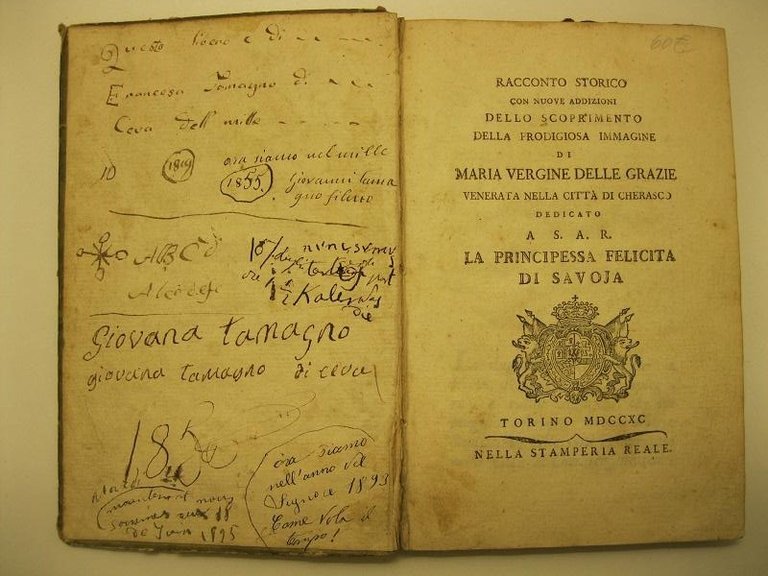 Questo libero e di
Francesa Tamagno di
Ceva dell mille
10 1819 ora siamo nel mille
1855. Giovanni tama
gno filitto
ABCd
Abcdefe
Kalendas
die
giovana tamagno
giovana tamagno di ceva
185
ora siamo
nell'anno del
Signore 1893
Come Vola il
tempo!
18
1895
60€
RACCONTO STORICO
CON NUOVE ADDIZIONI
DELLO SCOPRIMENTO
DELLA PRODIGIOSA IMMAGINE
DI
MARIA VERGINE DELLE GRAZIE
VENERATA NELLA CITTÀ DI CHERASCO
DEDICATO
A S. A. R.
LA PRINCIPESSA FELICITA
DI SAVOJA
TORINO MDCCXC
NELLA STAMPERIA REALE.